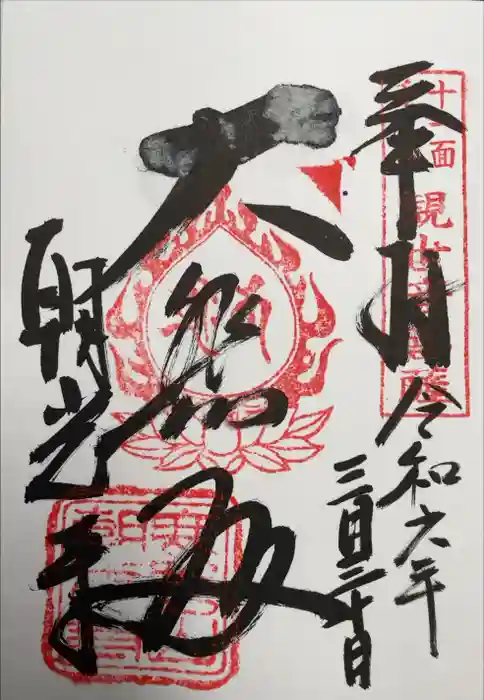 奉拝
令和六年
三月三十日
十一面観世音菩薩
大悲殿
朝光寺